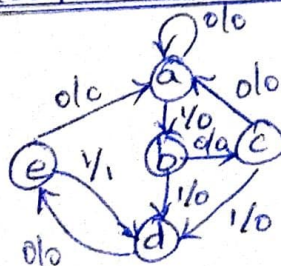 0/0
a
0/0
0/0
1/0
0/0
c
b
e
1/1
1/0
1/0
d
0/0